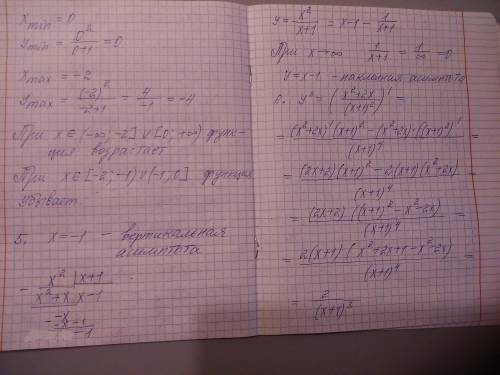 x min = 0
y min = 0²/(0+1) = 0
x max = -2
y max = (-2)²/(-2+1) = 4/-1 = -4
При x ∈ (-∞; -2] ∪ [0; +∞) функ-
ция возрастает
При x ∈ [-2; -1) ∪ (-1; 0] функция
убывает.
5. x = -1 - вертикальная
асимптота
- x² | x+1
x²+x | x-1
- -x
-x-1
1
y = x²/(x+1) = x-1 - 1/(x+1)
При x→∞ 1/(x+1) = 1/∞ = 0
y = x-1 - наклонная асимптота
6. y" = ((x²+2x)/(x+1)²)' =
= ((x²+2x)'(x+1)² - (x²+2x)·((x+1)²)')/(x+1)⁴ =
= ((2x+2)(x+1)² - 2(x+1)(x²+2x))/(x+1)⁴ =
= (2x+2)((x+1)² - x² - 2x)/(x+1)⁴ =
= 2(x+1)(x²+2x+1-x²-2x)/(x+1)⁴ =
= 2/(x+1)³